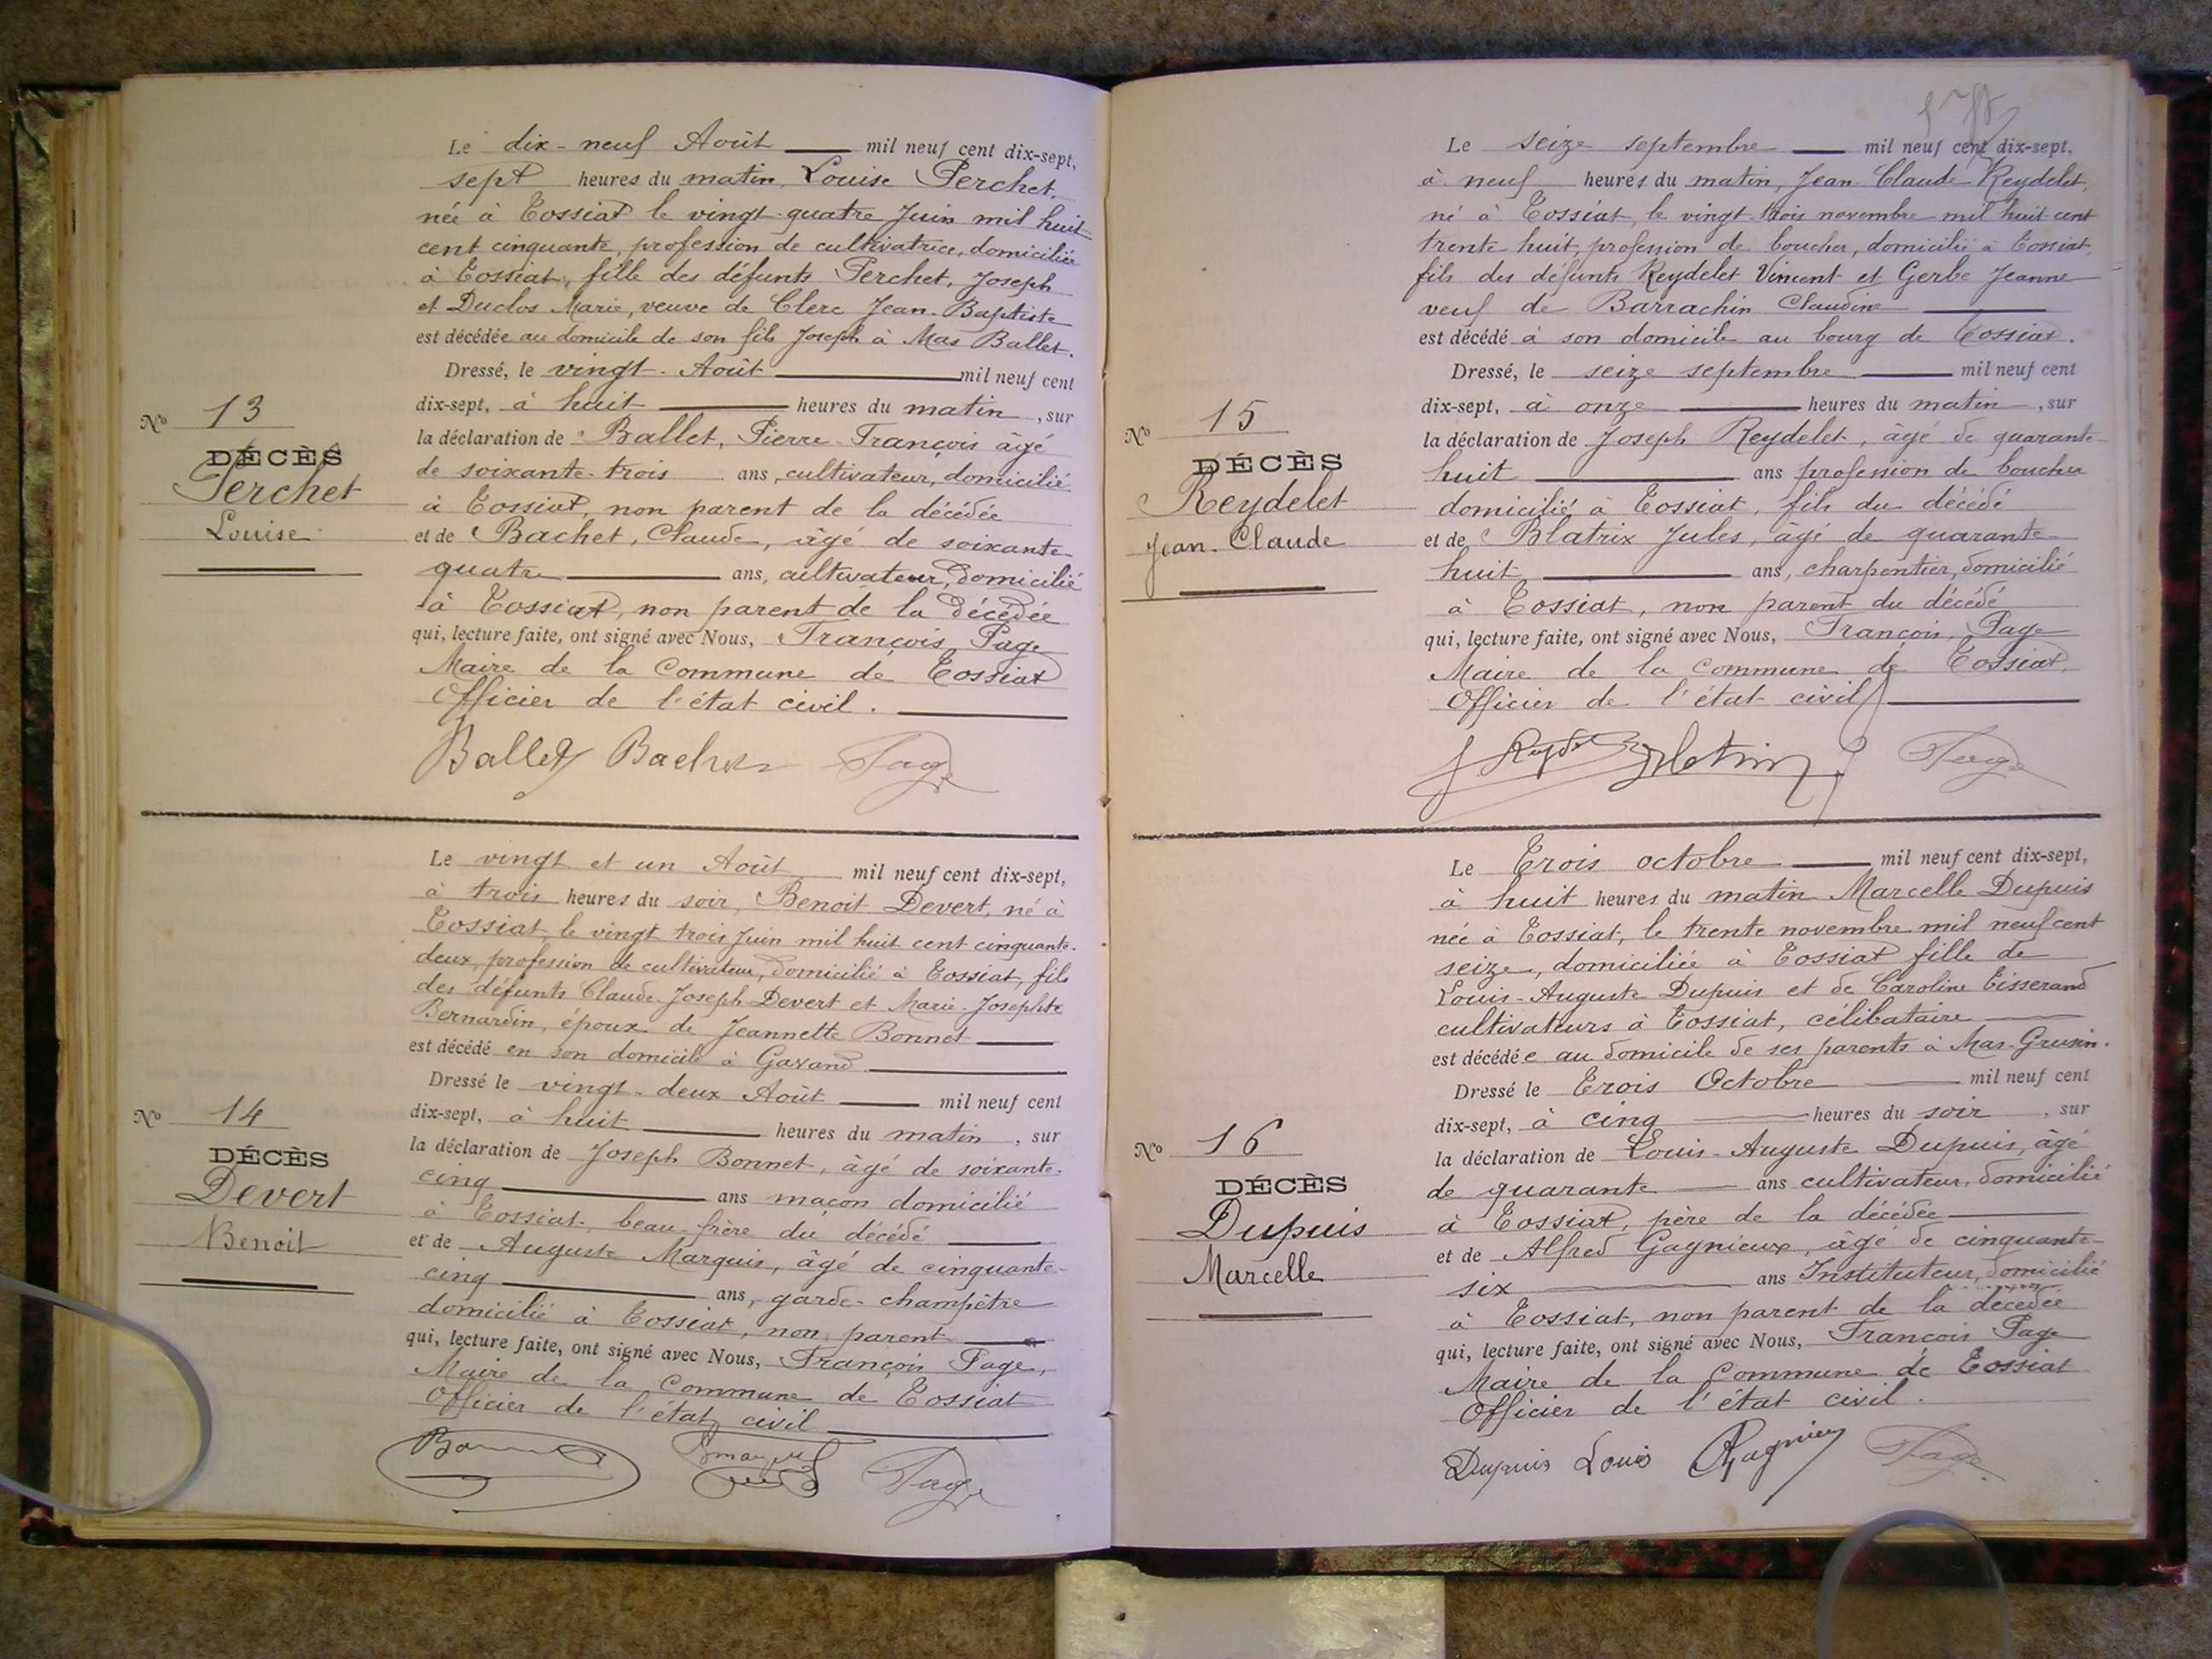 Le dix-neuf Août mil neuf cent dix-sept,
sept heures du matin, Louise Perchet,
née à Tossiat le vingt-quatre Juin mil huit
cent cinquante, profession de cultivatrice, domiciliée
à Tossiat, fille des défunts Perchet, Joseph
et Duclos Marie, veuve de Clerc Jean-Baptiste
est décédée au domicile de son fils Joseph à Mas Ballet.
Dressé, le vingt-Août mil neuf cent
dix-sept, à huit heures du matin, sur
la déclaration de Ballet, Pierre-François âgé
de soixante-trois ans, cultivateur, domicilié
à Tossiat, non parent de la décédée
et de Bachet, Claude, âgé de soixante-
quatre ans, cultivateur, domicilié
à Tossiat, non parent de la décédée
qui, lecture faite, ont signé avec Nous, François Page
Maire de la Commune de Tossiat
Officier de l'état civil.
Ballet Bachet Page
No 13
DÉCÈS
Perchet
Louise
Le vingt et un Août mil neuf cent dix-sept,
à trois heures du soir, Benoit Devert, né à
Tossiat, le vingt trois Juin mil huit cent cinquante-
deux, profession de cultivateur, domicilié à Tossiat, fils
des défunts Claude-Joseph Devert et Marie-Josephte
Bernardin, époux de Jeannette Bonnet
est décédé en son domicile à Gavand.
Dressé le vingt-deux Août mil neuf cent
dix-sept, à huit heures du matin, sur
la déclaration de Joseph Bonnet, âgé de soixante-
cinq ans maçon domicilié
à Tossiat, beau-frère du décédé
et de Auguste Marquis, âgé de cinquante-
cinq ans, garde-champêtre
domicilié à Tossiat, non parent
qui, lecture faite, ont signé avec Nous, François Page,
Maire de la Commune de Tossiat
Officier de l'état civil
Page
No 14
DÉCÈS
Devert
Benoit
Le seize septembre mil neuf cent dix-sept,
à neuf heures du matin, Jean-Claude Reydelet,
né à Tossiat, le vingt-trois novembre mil huit cent
trente huit, profession de boucher, domicilié à Tossiat,
fils des défunts Reydelet Vincent et Gerbe Jeanne
veuf de Barrachin Claudine
est décédé à son domicile au bourg de Tossiat.
Dressé, le seize septembre mil neuf cent
dix-sept, à onze heures du matin, sur
la déclaration de Joseph Reydelet, âgé de quarante-
huit ans profession de boucher
domicilié à Tossiat, fils du décédé
et de Blatrix Jules, âgé de quarante-
huit ans, charpentier, domicilié
à Tossiat, non parent du décédé
qui, lecture faite, ont signé avec Nous, François Page
Maire de la Commune de Tossiat
Officier de l'état civil
Page
No 15
DÉCÈS
Reydelet
Jean-Claude
Le Trois octobre mil neuf cent dix-sept,
à huit heures du matin Marcelle Dupuis
née à Tossiat, le trente novembre mil neuf cent
seize, domiciliée à Tossiat fille de
Louis-Auguste Dupuis et de Caroline Tisserand
cultivateurs à Tossiat, célibataire
est décédée au domicile de ses parents à Mas-Grusin.
Dressé le Trois Octobre mil neuf cent
dix-sept, à cinq heures du soir, sur
la déclaration de Louis-Auguste Dupuis, âgé
de quarante ans cultivateur, domicilié
à Tossiat, père de la décédée
et de Alfred Gagnieux, âgé de cinquante-
six ans Instituteur, domicilié
à Tossiat, non parent de la décédée
qui, lecture faite, ont signé avec Nous, François Page
Maire de la Commune de Tossiat
Officier de l'état civil.
Dupuis Louis Page
No 16
DÉCÈS
Dupuis
Marcelle